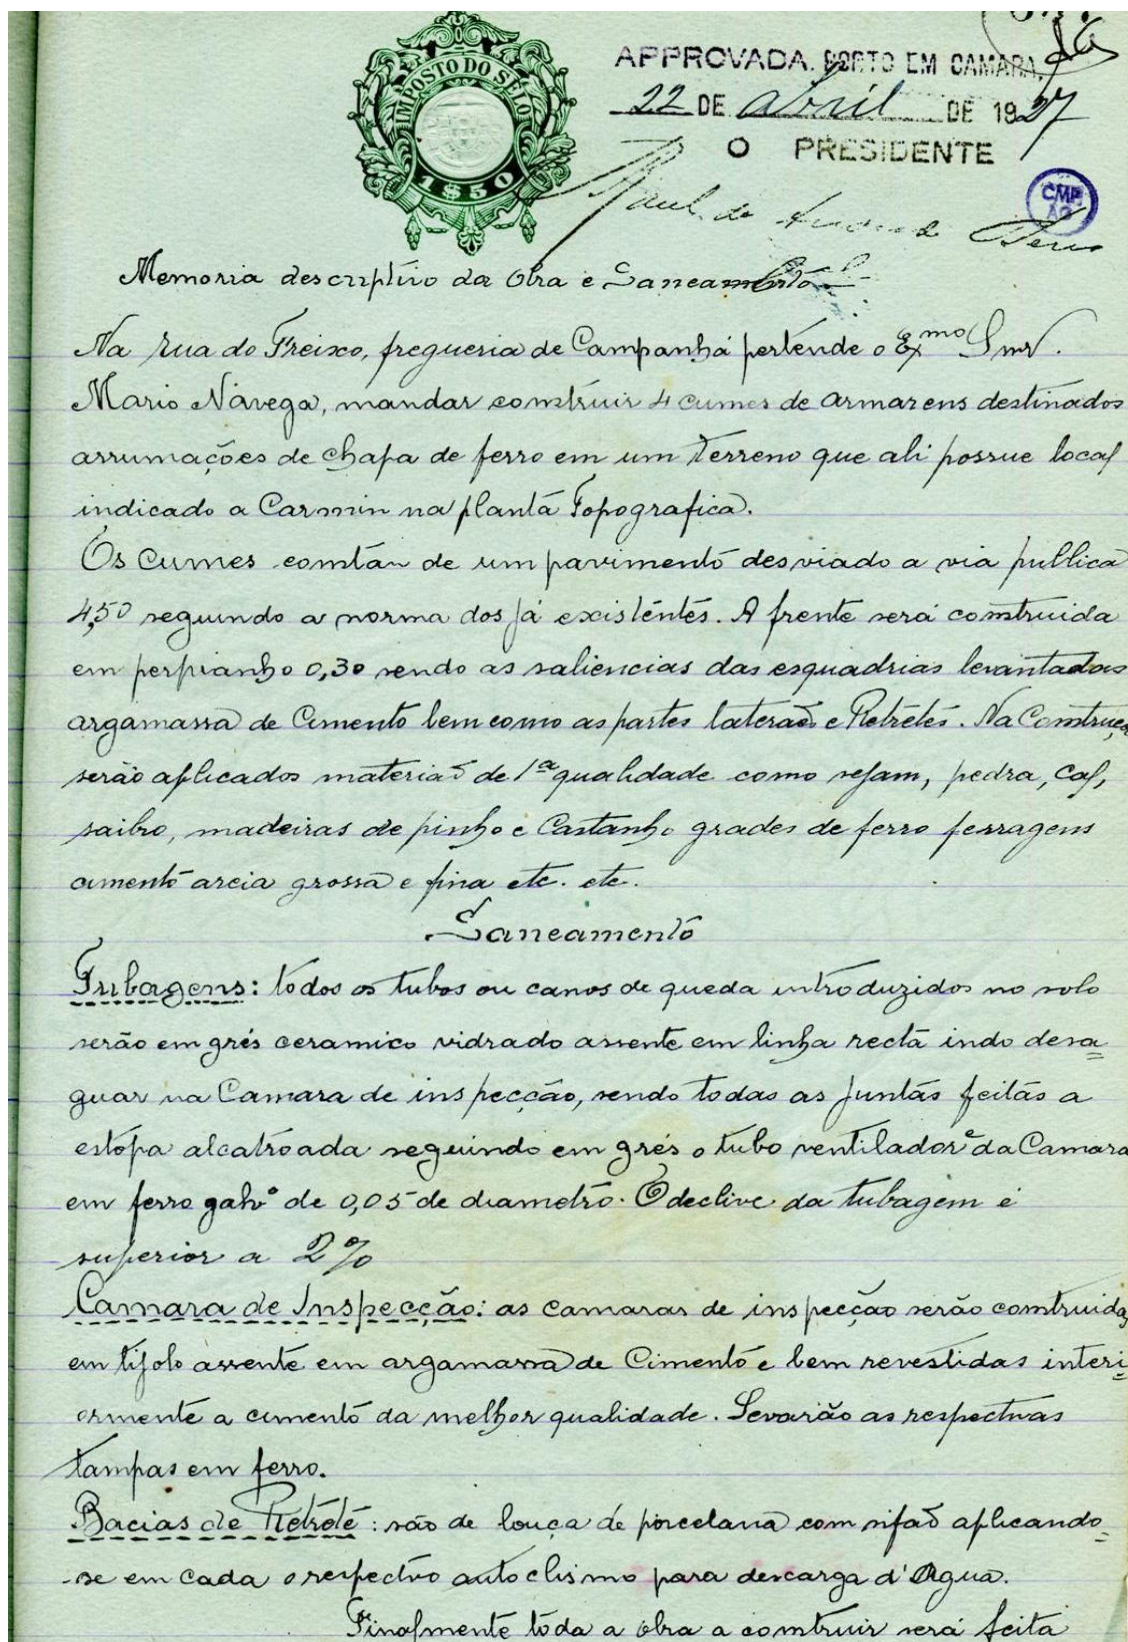 IMPOSTO DO SELO
1$50
APPROVADA. PORTO EM CAMARA,
22 DE Abril DE 1927
O PRESIDENTE
Raul de
CMP
AG
Memoria descriptivo da Obra e Saneamento
Na Rua do Freixo, freguesia de Campanhã pertende o Exmo Snr.
Mario Návega, mandar construir 4 cumes de Armazens destinados
arrumações de chapa de ferro em um Terreno que ali possue local
indicado a Carmin na planta Topografica.
Os Cumes comstan de um pavimento desviado a via publica
4,50 seguindo a norma dos já existentes. A frente será comstruida
em perpianho 0,30 sendo as saliencias das esquadrias levantadas
argamassa de Cimento bem como as partes lateraes e Retretes. Na Construção
serão aplicados materiaes de 1ª qualidade como sejam, pedra, Cal,
saibro, madeiras de pinho e Castanho grades de ferro ferragens
cimento areia grossa e fina etc. etc.
Saneamento
Tubagens: todos os tubos ou canos de queda introduzidos no solo
serão em grés ceramico vidrado assente em linha recta indo desa=
guar na Camara de inspecção, sendo todas as Juntas feitas a
estopa alcatroada seguindo em grés o tubo ventilador da Camara
em ferro galvº de 0,05 de diametro. O declive da tubagem é
superior a 2%
Camara de Inspecção: as camaras de inspecção serão comstruidas
em tijolo assente em argamassa de Cimento e bem revestidas interi=
ormente a cimento da melhor qualidade. Levarão as respectivas
tampas em ferro.
Bacias de Retrete: são de louça de porcelana com sifão aplicando=
-se em cada o respectivo autoclismo para descarga d'Agua.
Finalmente toda a obra a comstruir será feita